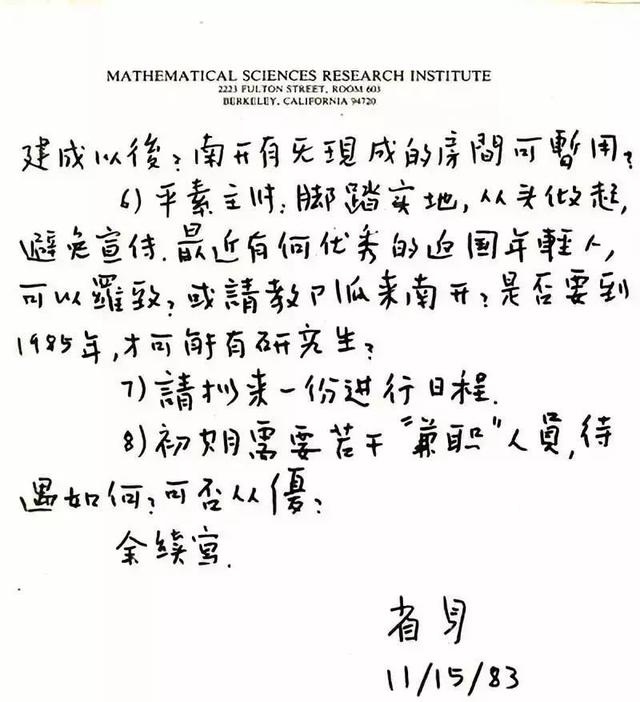 MATHEMATICAL SCIENCES RESEARCH INSTITUTE
2223 FULTON STREET, ROOM 603
BERKELEY, CALIFORNIA 94720
建成以後?南开有无現成的房間可暫用?
6) 平素主时:脚踏实地,从头做起,
避免宣传.最近有何优秀的返国年輕人,
可以羅致?或請教
来南开?是否要到
1985年,才可能有研究生?
7) 請拟来一份进行日程.
8) 初期需要若干"兼职"人員,待
遇如何?可否从優?
余续写.
省身
11/15/83